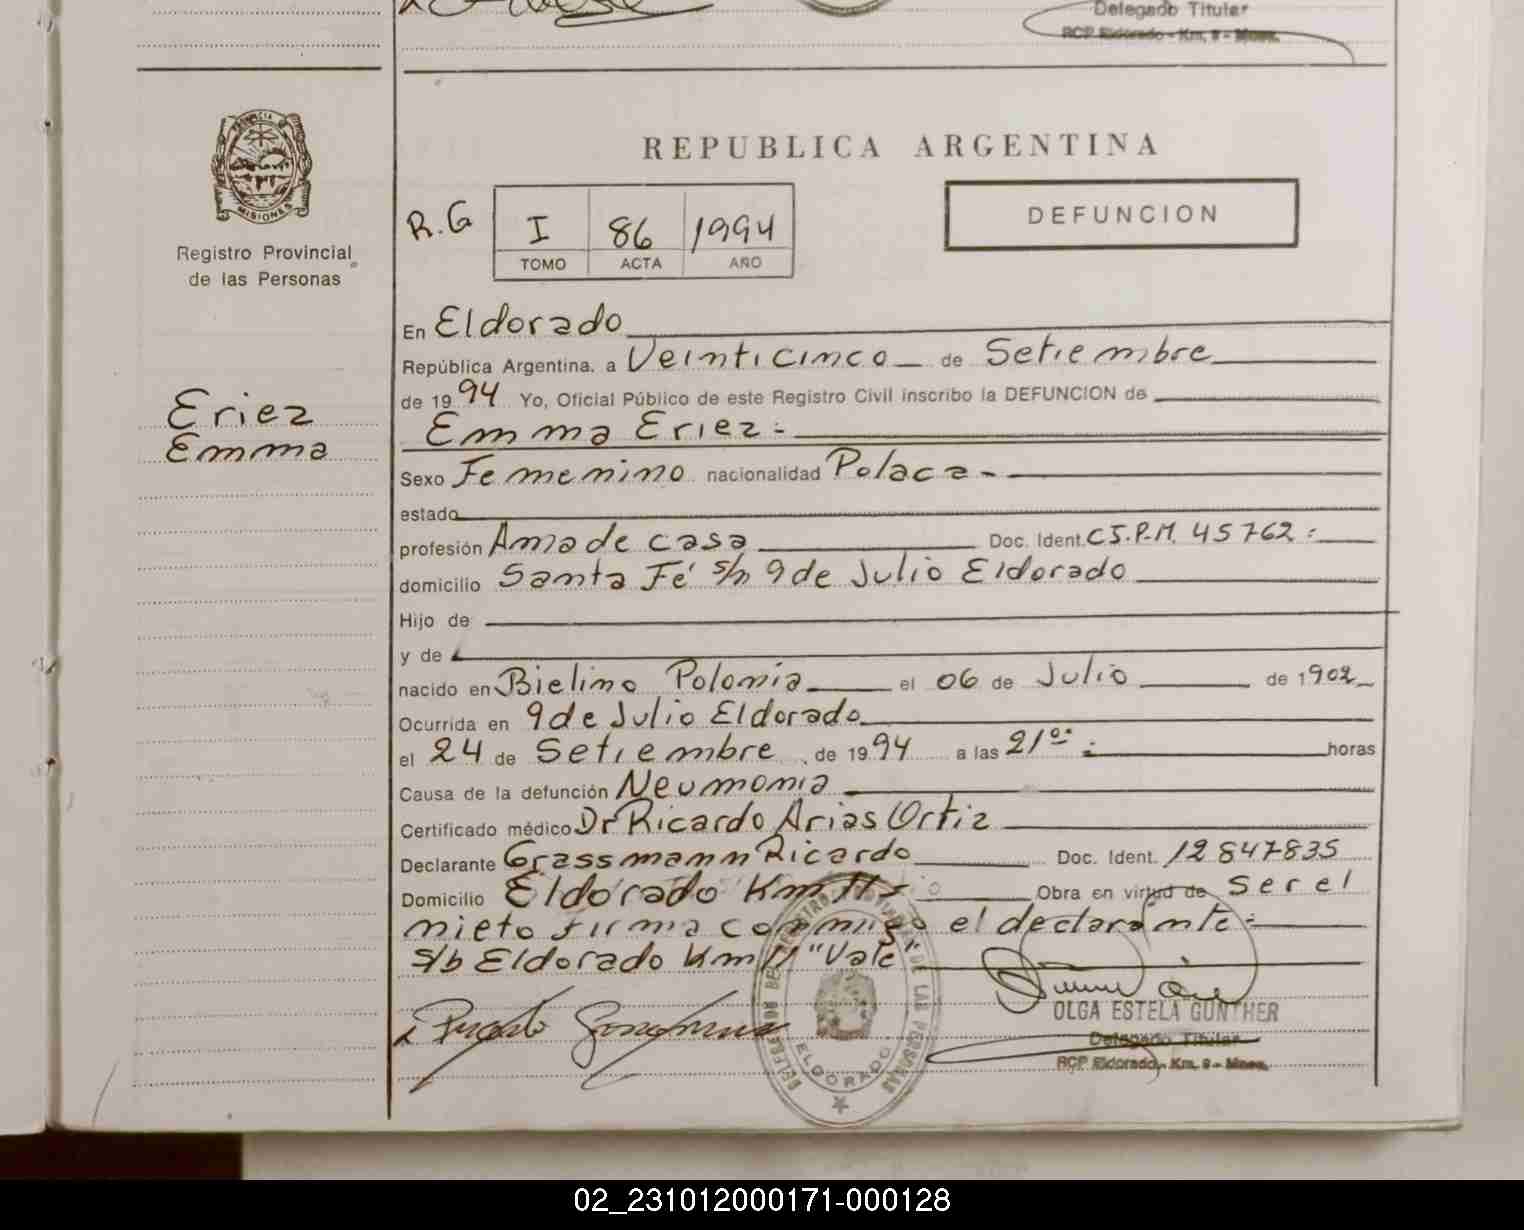 Delegado Titular
RCP Eldorado - Km. 9 - Mnes.
PROVINCIA DE
MISIONES
Registro Provincial
de las Personas
REPUBLICA ARGENTINA
R.G I 86 1994
TOMO ACTA AÑO
DEFUNCION
Eriez
Emma
En Eldorado
República Argentina, a Veinticinco de Setiembre
de 1994 Yo, Oficial Público de este Registro Civil inscribo la DEFUNCION de
Emma Eriez.-
Sexo Femenino nacionalidad Polaca -
estado
profesión Ama de casa Doc. Ident. CI.P.M. 45762 :
domicilio Santa Fé s/n 9 de Julio Eldorado
Hijo de
y de
nacido en Bielino Polonia el 06 de Julio de 1902
Ocurrida en 9 de Julio Eldorado
el 24 de Setiembre de 1994 a las 21º: horas
Causa de la defunción Neumonia
Certificado médico Dr Ricardo Arias Ortiz
Declarante Grassmann Ricardo Doc. Ident. 12847835
Domicilio Eldorado Km 11 Obra en virtud de Ser el
nieto firma conmigo el declarante:
s/b Eldorado Km 11 "Vale"
OLGA ESTELA GUNTHER
Delegado Titular
RCP Eldorado - Km. 9 - Mnes.
ELDORADO
02_231012000171-000128